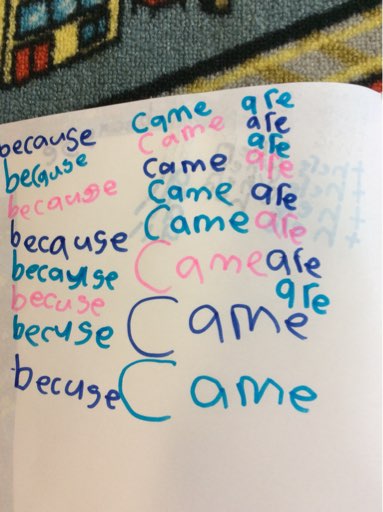 because
because
because
because
because
becuse
becuse
becuse
came
came
came
came
Came
Came
Came
Came
are
are
are
are
are
are
are
are